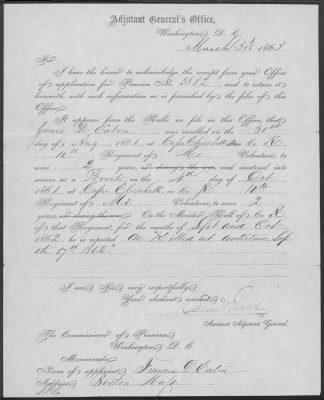 Adjutant General's Office,
Washington D. C.
March 3th 1863
Sir:
I have the honor to acknowledge the receipt from your Office
of application for Pension No. 3882 and to return it
herewith, with such information as is furnished by the files of this
Office.
It appears from the Rolls on file in this Office, that
D. Eaton was enrolled on the 31st
day of 1861, at Cape Elizabeth in Co. K
10th Regiment of Me Volunteers, to serve
2 years, or during the war, and mustered into
service as a Private on the 4th day of Oct
1861, at Cape Elizabeth in Co. K 10th
Regiment of Me Volunteers, to serve 2
years, or during the war. On the Muster Roll of Co. K
of that Regiment, for the months of Sept and Oct
1862, he is reported Killed at Antietam Sep
17th 1862
I am, Sir, very respectfully,
Your obedient servant,
Assistant Adjutant General.
The Commissioner of Pensions,
Washington, D. C.
Memoranda:
Name of applicant, Frances D. Eaton
Address, Boston Mass